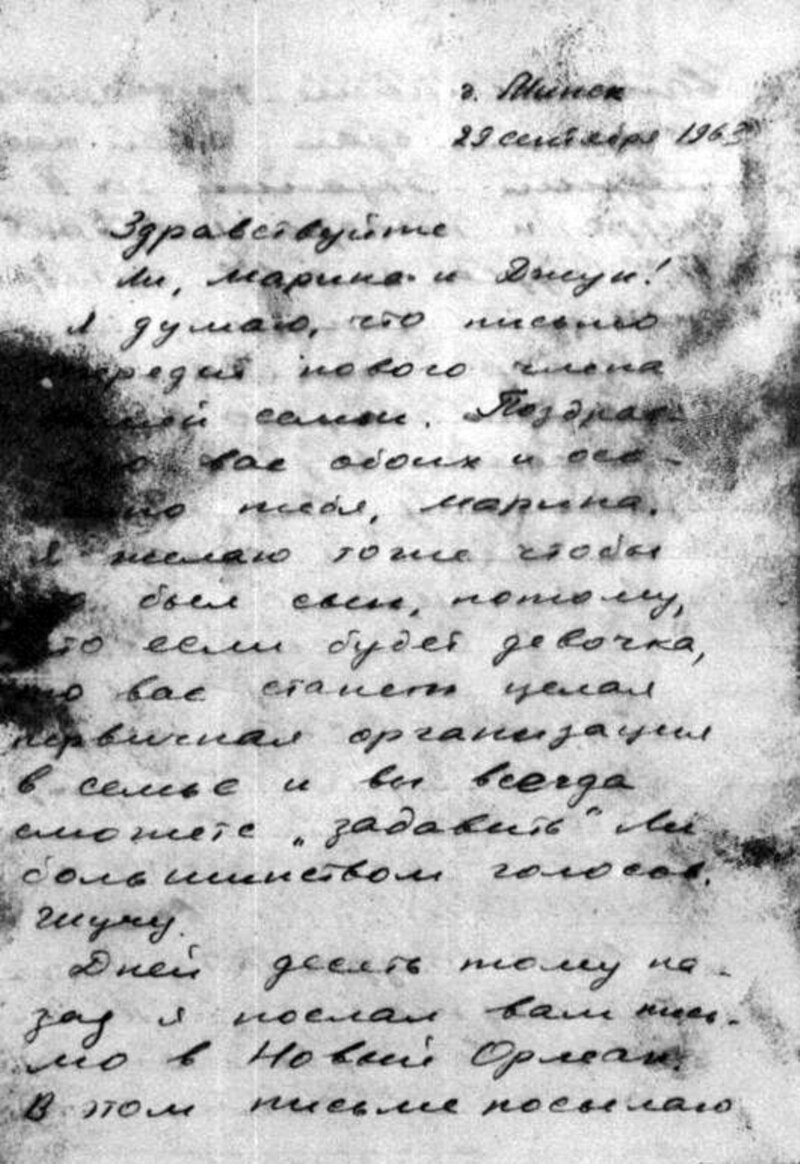 г. Минск
29 сентября 1963
Здравствуйте
Ли, Марина и Джун!
Я думаю, что письмо
нового члена
семьи. Поздрав-
вас обоих и осо-
тебя, Марина.
Я желаю тоже чтобы
был сын, потому,
что если будет девочка,
то вас станет целая
первичная организация
в семье и вы всегда
сможете „задавить“ Ли
большинством голосов.
Шучу.
Дней десять тому на-
зад я послал вам пись-
мо в Новый Орлеан.
В этом письме посылаю